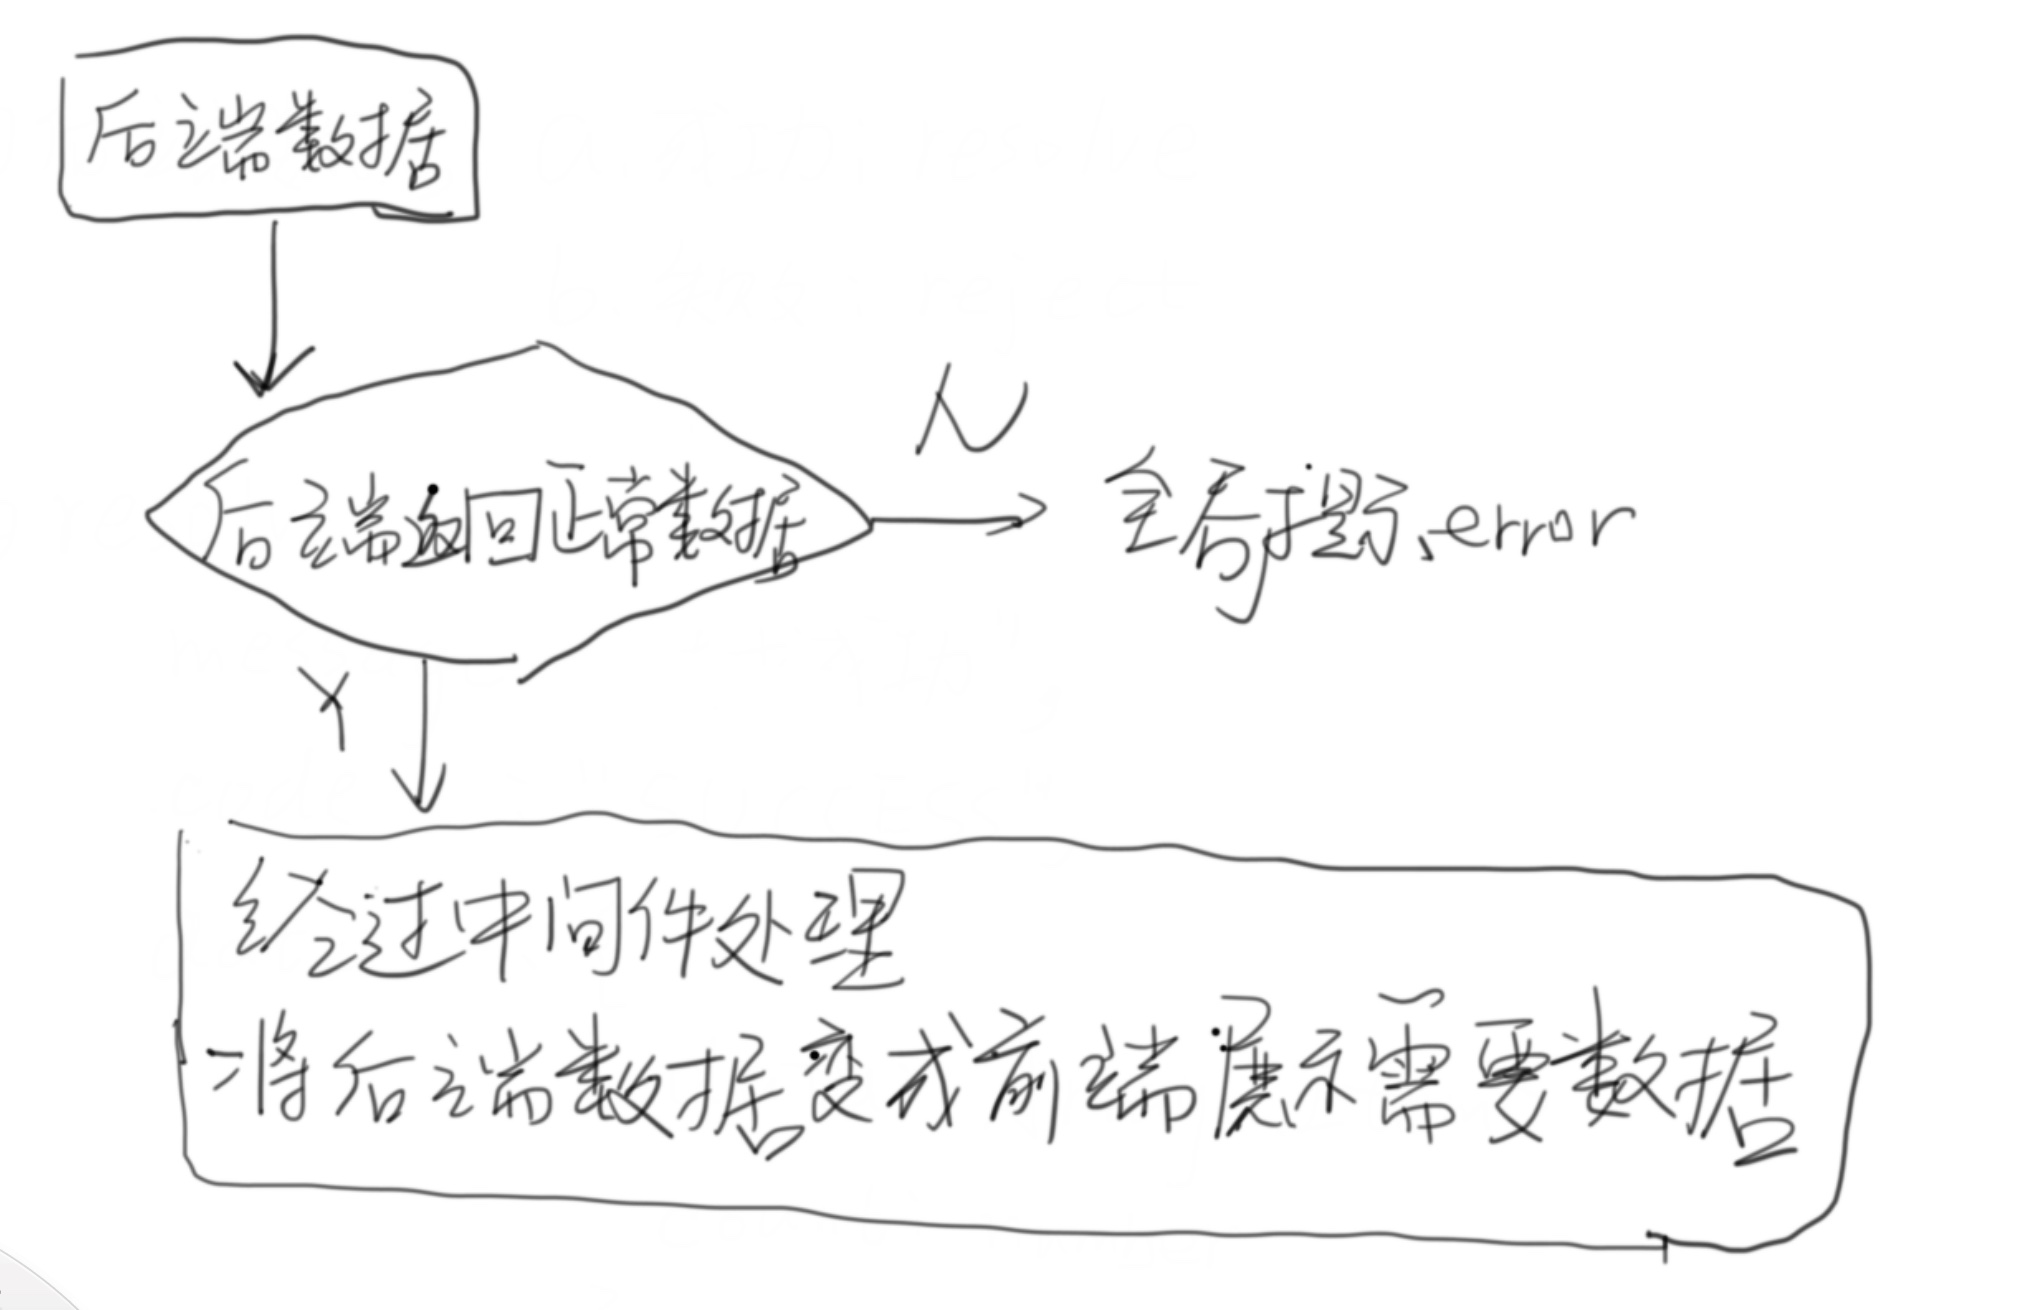 后端数据
后端返回正常数据
N
全局提示.error
Y
经过中间件处理
将后端数据变成前端展示需要数据